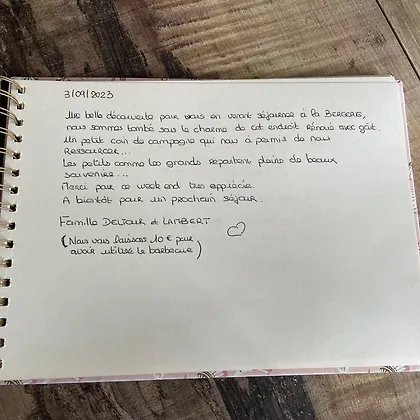 3/09/2023
Une belle découverte pour nous en venant séjourner à la BERGERIE,
nous sommes tombé sous le charme de cet endroit Rénové avec goût.
Un petit coin de campagne qui nous a permis de nous
RESSOURCER...
Les petits comme les grands repartent pleins de beaux
souvenirs...
Merci pour ce week end très appréciée.
A bientôt pour un prochain séjour.
Famille DELTOUR et LAMBERT
(Nous vous laissons 10 € pour
avoir utilisé le barbecue)